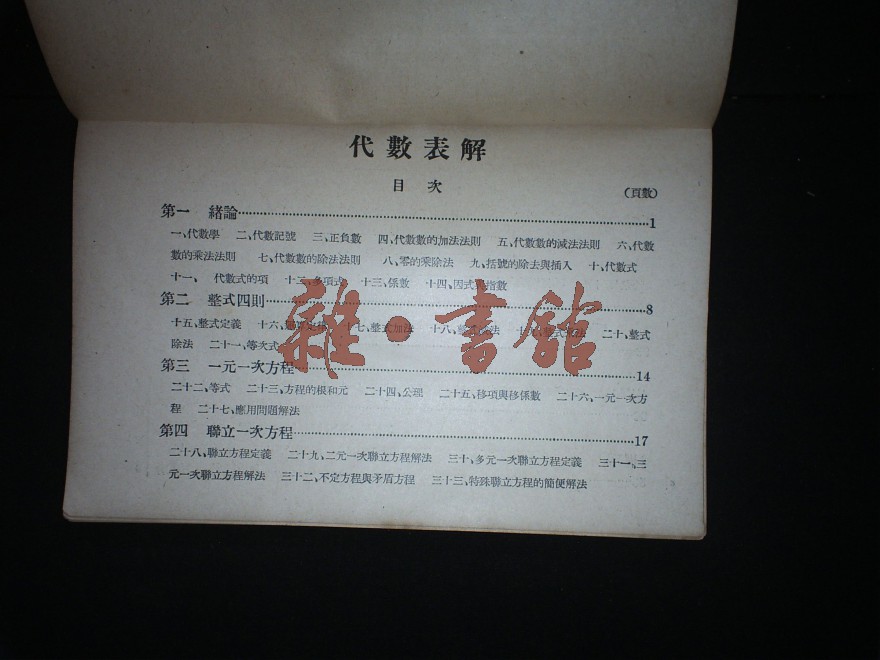 代數表解
目次
(頁數)
第一 緒論 1
一、代數學 二、代數記號 三、正負數 四、代數數的加法法則 五、代數數的減法法則 六、代數
數的乘法法則 七、代數數的除法法則 八、零的乘除法 九、括號的除去與插入 十、代數式
十一、代數式的項 十二、多項式 十三、係數 十四、因式 指數
第二 整式四則 8
十五、整式定義 十六、 十七、整式加法 十八、 法 法 二十、整式
除法 二十一、等次式
第三 一元一次方程 14
二十二、等式 二十三、方程的根和元 二十四、公理 二十五、移項與移係數 二十六、一元一次方
程 二十七、應用問題解法
第四 聯立一次方程 17
二十八、聯立方程定義 二十九、二元一次聯立方程解法 三十、多元一次聯立方程定義 三十一、三
元一次聯立方程解法 三十二、不定方程與矛盾方程 三十三、特殊聯立方程的簡便解法
雜·書館